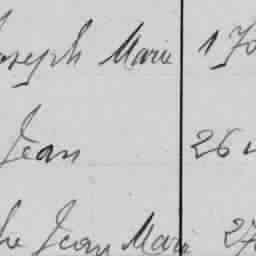 Joseph Marie 1
Jean 26
Jean Marie 27